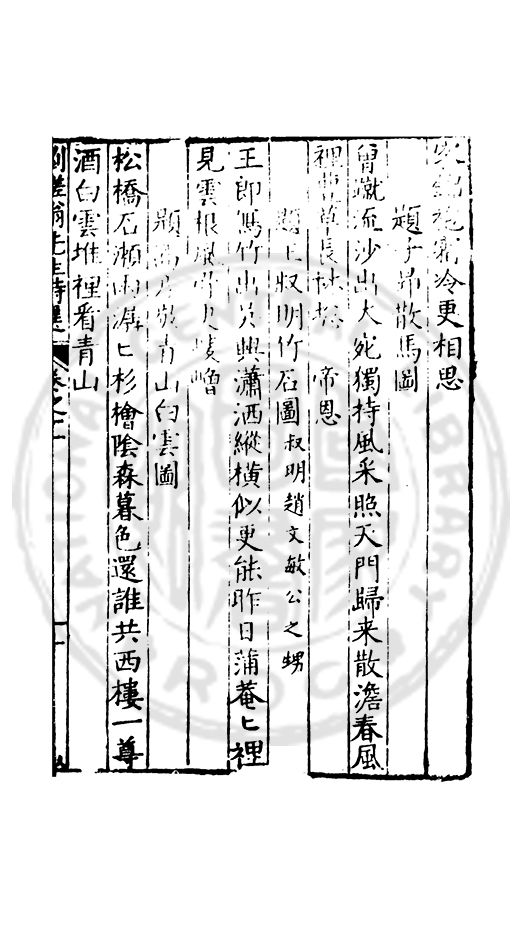 冷更相思
題子昂散馬圖
曾蹴流沙出大宛獨持風采照天門歸来散澹春風
裡豐草長林荷帝恩
題王叔明竹石圖叔明趙文敏公之甥
王郎寫竹出吳興瀟洒縱横似更能昨日蒲菴匕裡
見雲根
題高房敬青山白雲圖
松橋石瀨雨潺匕杉檜陰森暮色還誰共西樓一尊
酒白雲堆裡看青山
先生詩選 卷之二